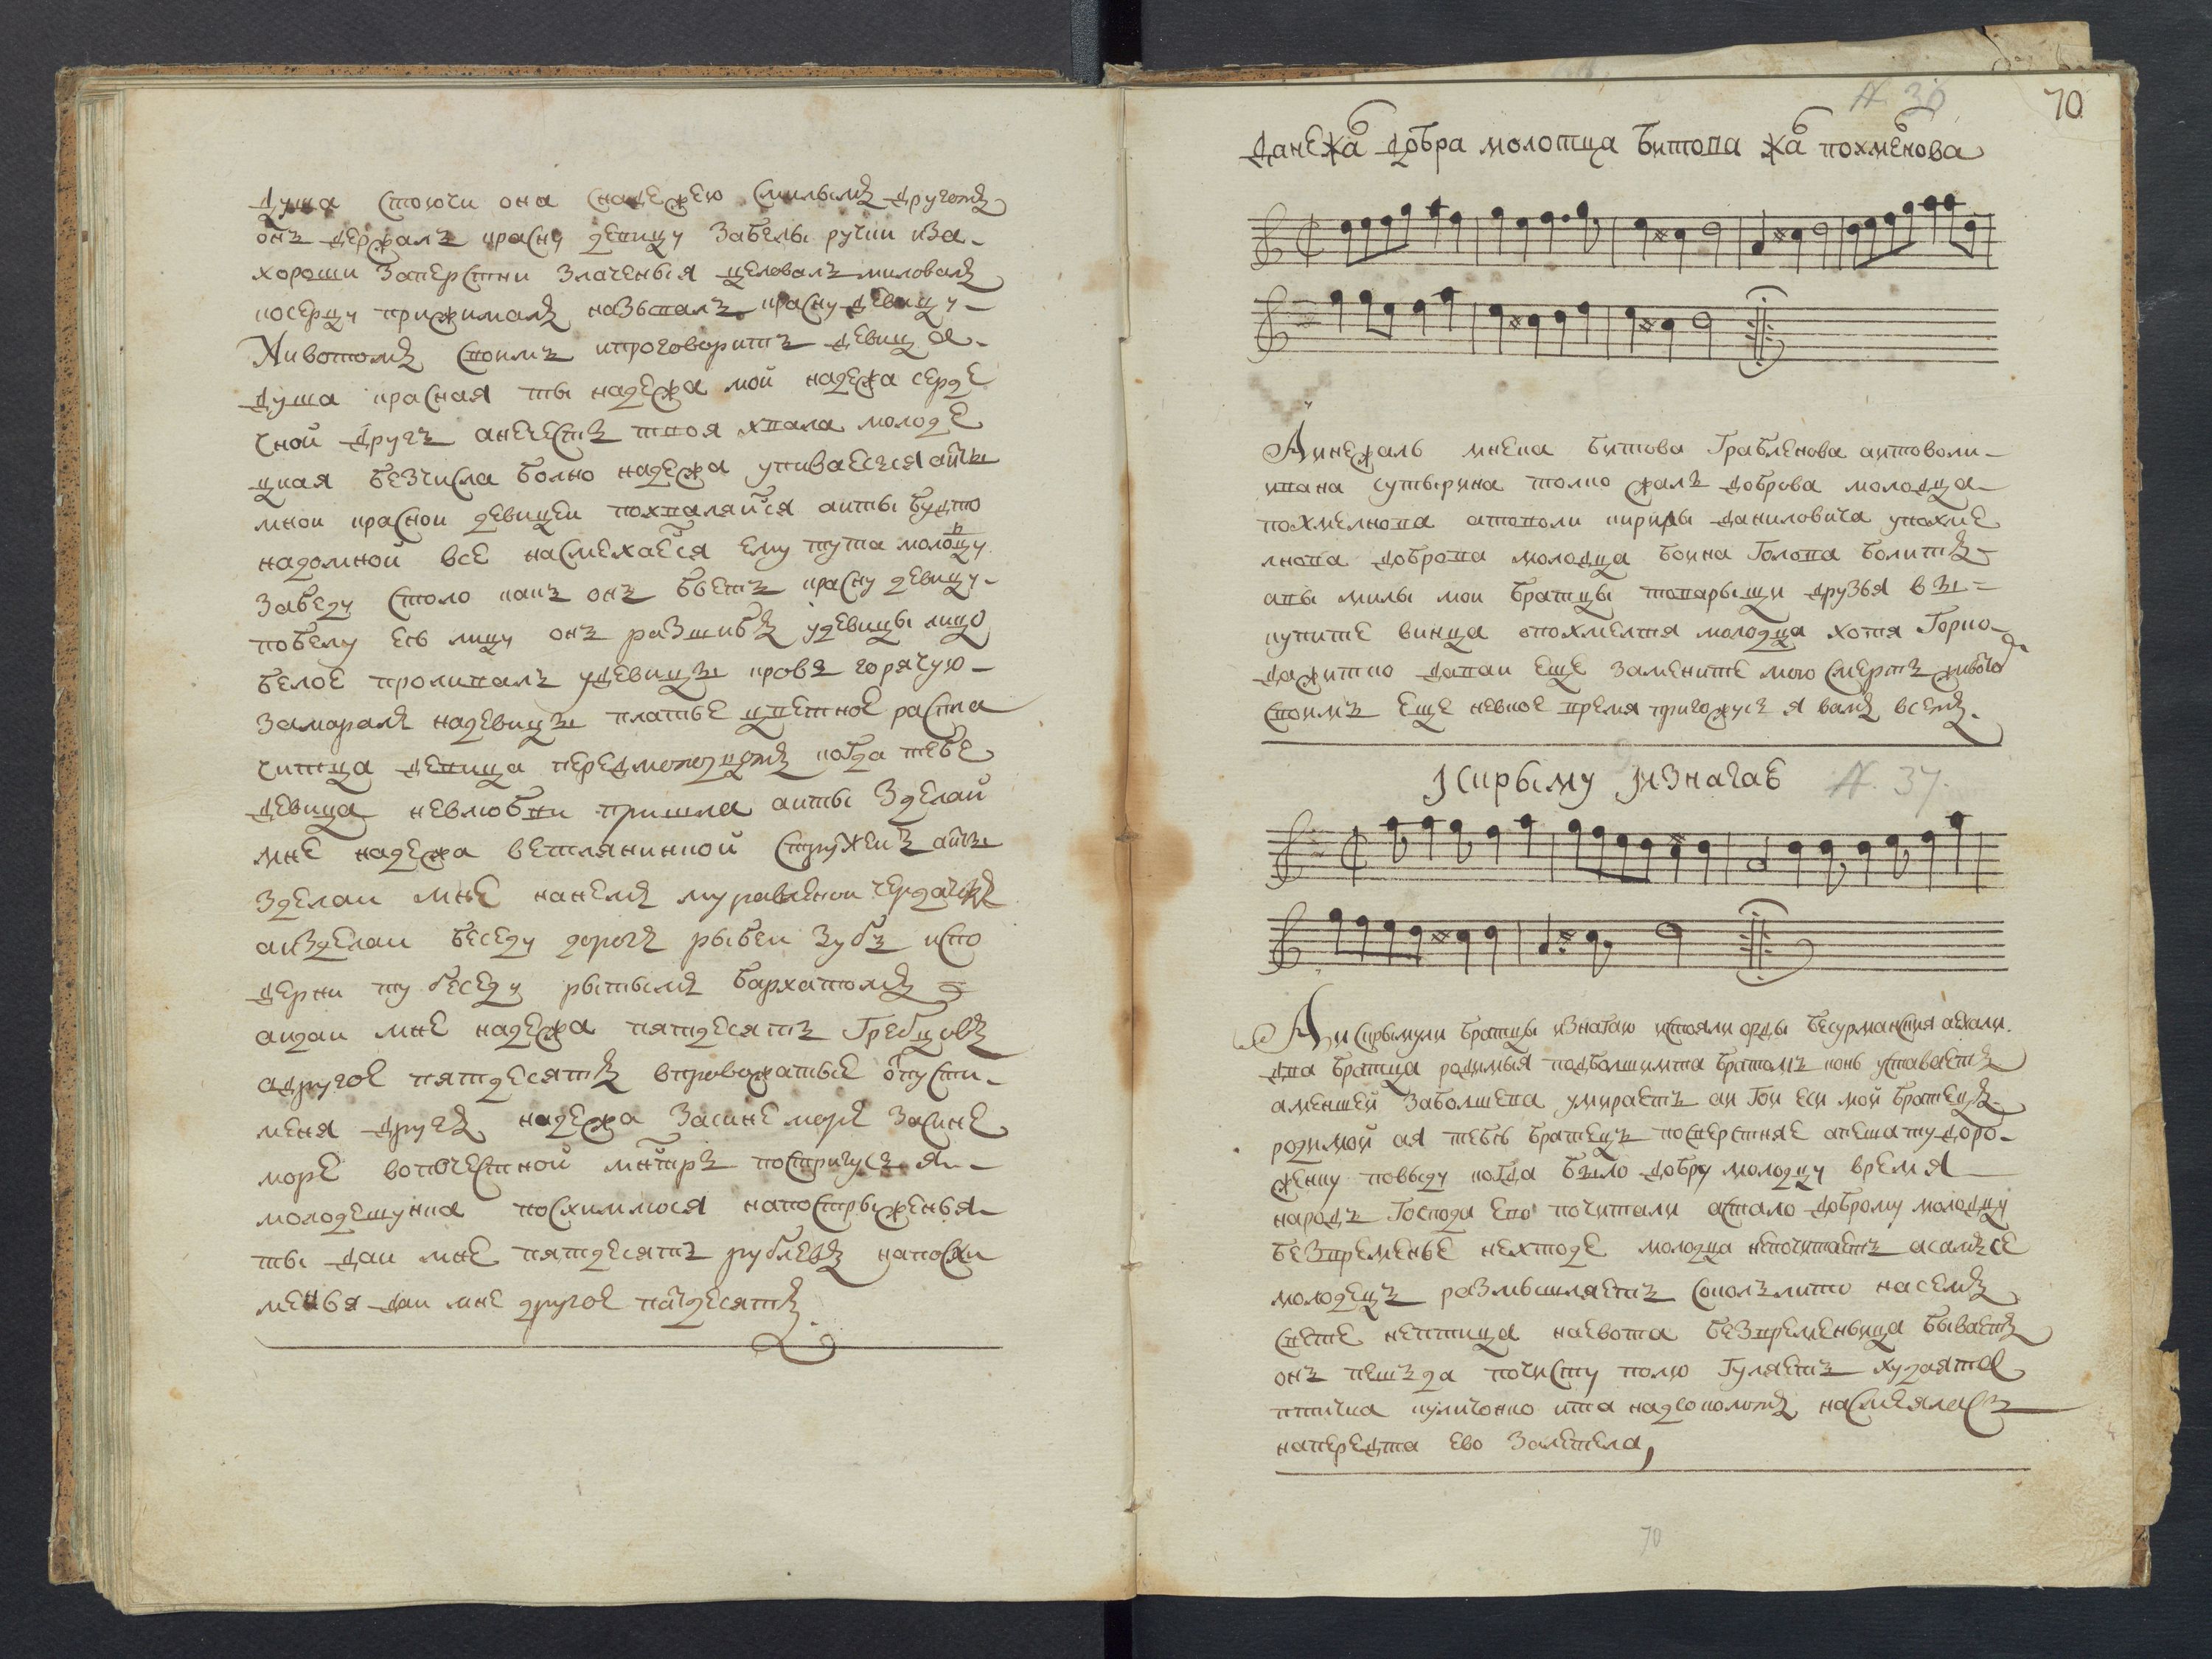 душа стоючи она снадежею смилымъ другомъ
онъ держалъ красну девицу забелы ручки иза
хороши заперстни злаченыя целовалъ миловалъ
косерцу прижималъ называлъ красну девицу
Животомъ своимъ ипроговоритъ девица
душа красная ты надежа мой надежа серде
чной другъ анечесть твоя хвала молоде
цкая безчисла болно надежа упиваесься аи ты
мнои краснои девицеи похваляйся аиты будто
надомной все насмехаесся ему тута молоцу
забеду стало какъ онъ бьетъ красну девицу
побелу еіо лицу онъ разшибъ удевицы лицо
белое проливалъ удевицы кровь горячую
замаралъ надевице платье цветное распла
чится девица передмолодцомъ когда тебе
девица невлюбви пришла аиты зделай
мне надежа ветляниннои стружекъ аи ты
зделаи мне нанемъ муравленои чердачокъ
аизделаи беседу дорогъ рыбеи зубъ испо
дерни ту беседу рытымъ бархатомъ
аидаи мне надежа пятдесятъ Гребцовъ
адругое пятдесятъ впровожатые отпусти
меня другъ надежа засине море засине
море вопочестной мнстрь постригусь я
молодешунка посхимлюся напостриженья
ты даи мне пятдесятъ рублевъ напосхи
менья даи мне другое пятдесятъ
N. 36
70
Данежаль добра молотца битова жаль похмелнова
Аинежаль мнека битова Грабленова аитоволи
ивана сутырина толко жаль доброва молодца
похмелнова атоволи кирилы даниловича упохме
лнова доброва молодца боина Голова болитъ
авы милы мои братцы товарыщи друзья вы
купите винца опохмелтя молодца хотя Горко
дажитко даваи еще замените мою смерть животомъ
своимъ еще некое время пригожусь я вамъ всемъ
іскрыму іизнагаѣ N. 37.
Аи скрымули братцы изнагаю истояли орды бесурманския аехали
два братца родимыя подболшимта братомъ конь уставаетъ
аменшей заболшева умираетъ аи Гои еси мой братецъ
родимой ая тебѣ братецъ посверстняе апешату доро
женку повыду когда было добру молодцу время
народъ Господа ево почитали астало доброму молодцу
безвременье нехтоде молодца непочитаетъ асамъ се
молодецъ размышляетъ соколълито насемъ
свете нептица наевота безвременьица бываетъ
онъ пешъ да почисту полю Гуляетъ худаято
птичка куличонко ита надсоколомъ насмеяласъ
напередта ево залетела,
70